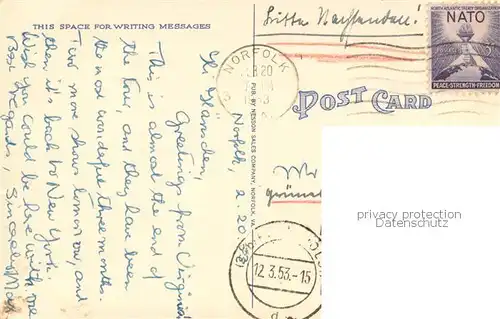 THIS SPACE FOR WRITING MESSAGES
Norfolk, 2. 20
Greetings from Virginia!
This is almost the end of
the tour, and they have been
the most wonderful three months.
Two more shows tomorrow, and
then it's back to New York.
Wish you could be here with me
Best regards, Sincerely
PUB. BY NESSON SALES COMPANY, NORFOLK, VA.
Bitte Nachsenden!
NORTH ATLANTIC TREATY ORGANIZATION
NATO
3¢
PEACE-STRENGTH-FREEDOM
NORFOLK
20
POST CARD
12.3.53.-15
privacy protection
privacy protection